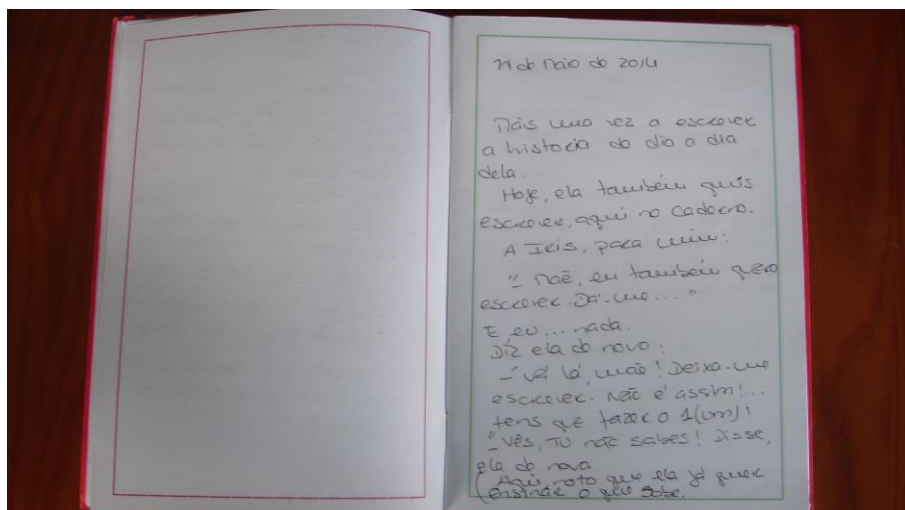 11 de Maio de 2014
Mais uma vez a escrever
a historia do dia a dia
dela.
Hoje, ela também quis
escrever, aqui no caderno.
A Iris, para mim:
"- Mãe, eu também quero
escrever. Dá-me..."
E eu... nada.
Diz ela do novo:
- Vá lá, mãe! Deixa-me
escrever. Não é assim!...
tens que fazer o 1(um)!
"- Vês, Tu não sabes! Disse,
ela do nova
(Aqui, noto que ela já quer
ensinar o que sabe.